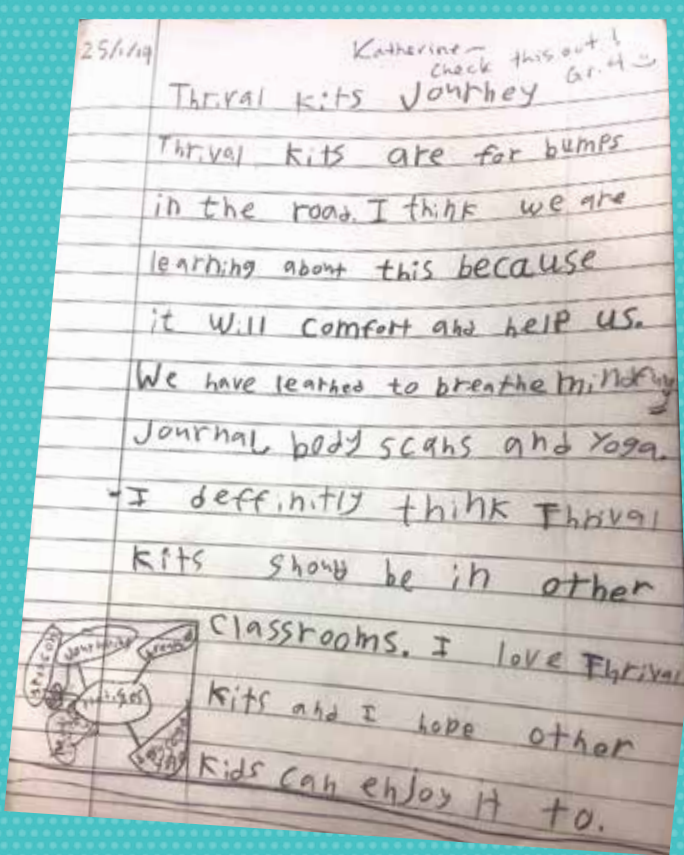 25/1/19
Katherine –
check this out!
Gr. 4
Thrival kits Journey
Thrival kits are for bumps
in the road. I think we are
learning about this because
it will comfort and help us.
We have learned to breathe mindfuly
Journal, body scans and Yoga.
-I deffinitly think Thrival
kits should be in other
classrooms. I love Thrival
kits and I hope other
kids can enjoy it to.